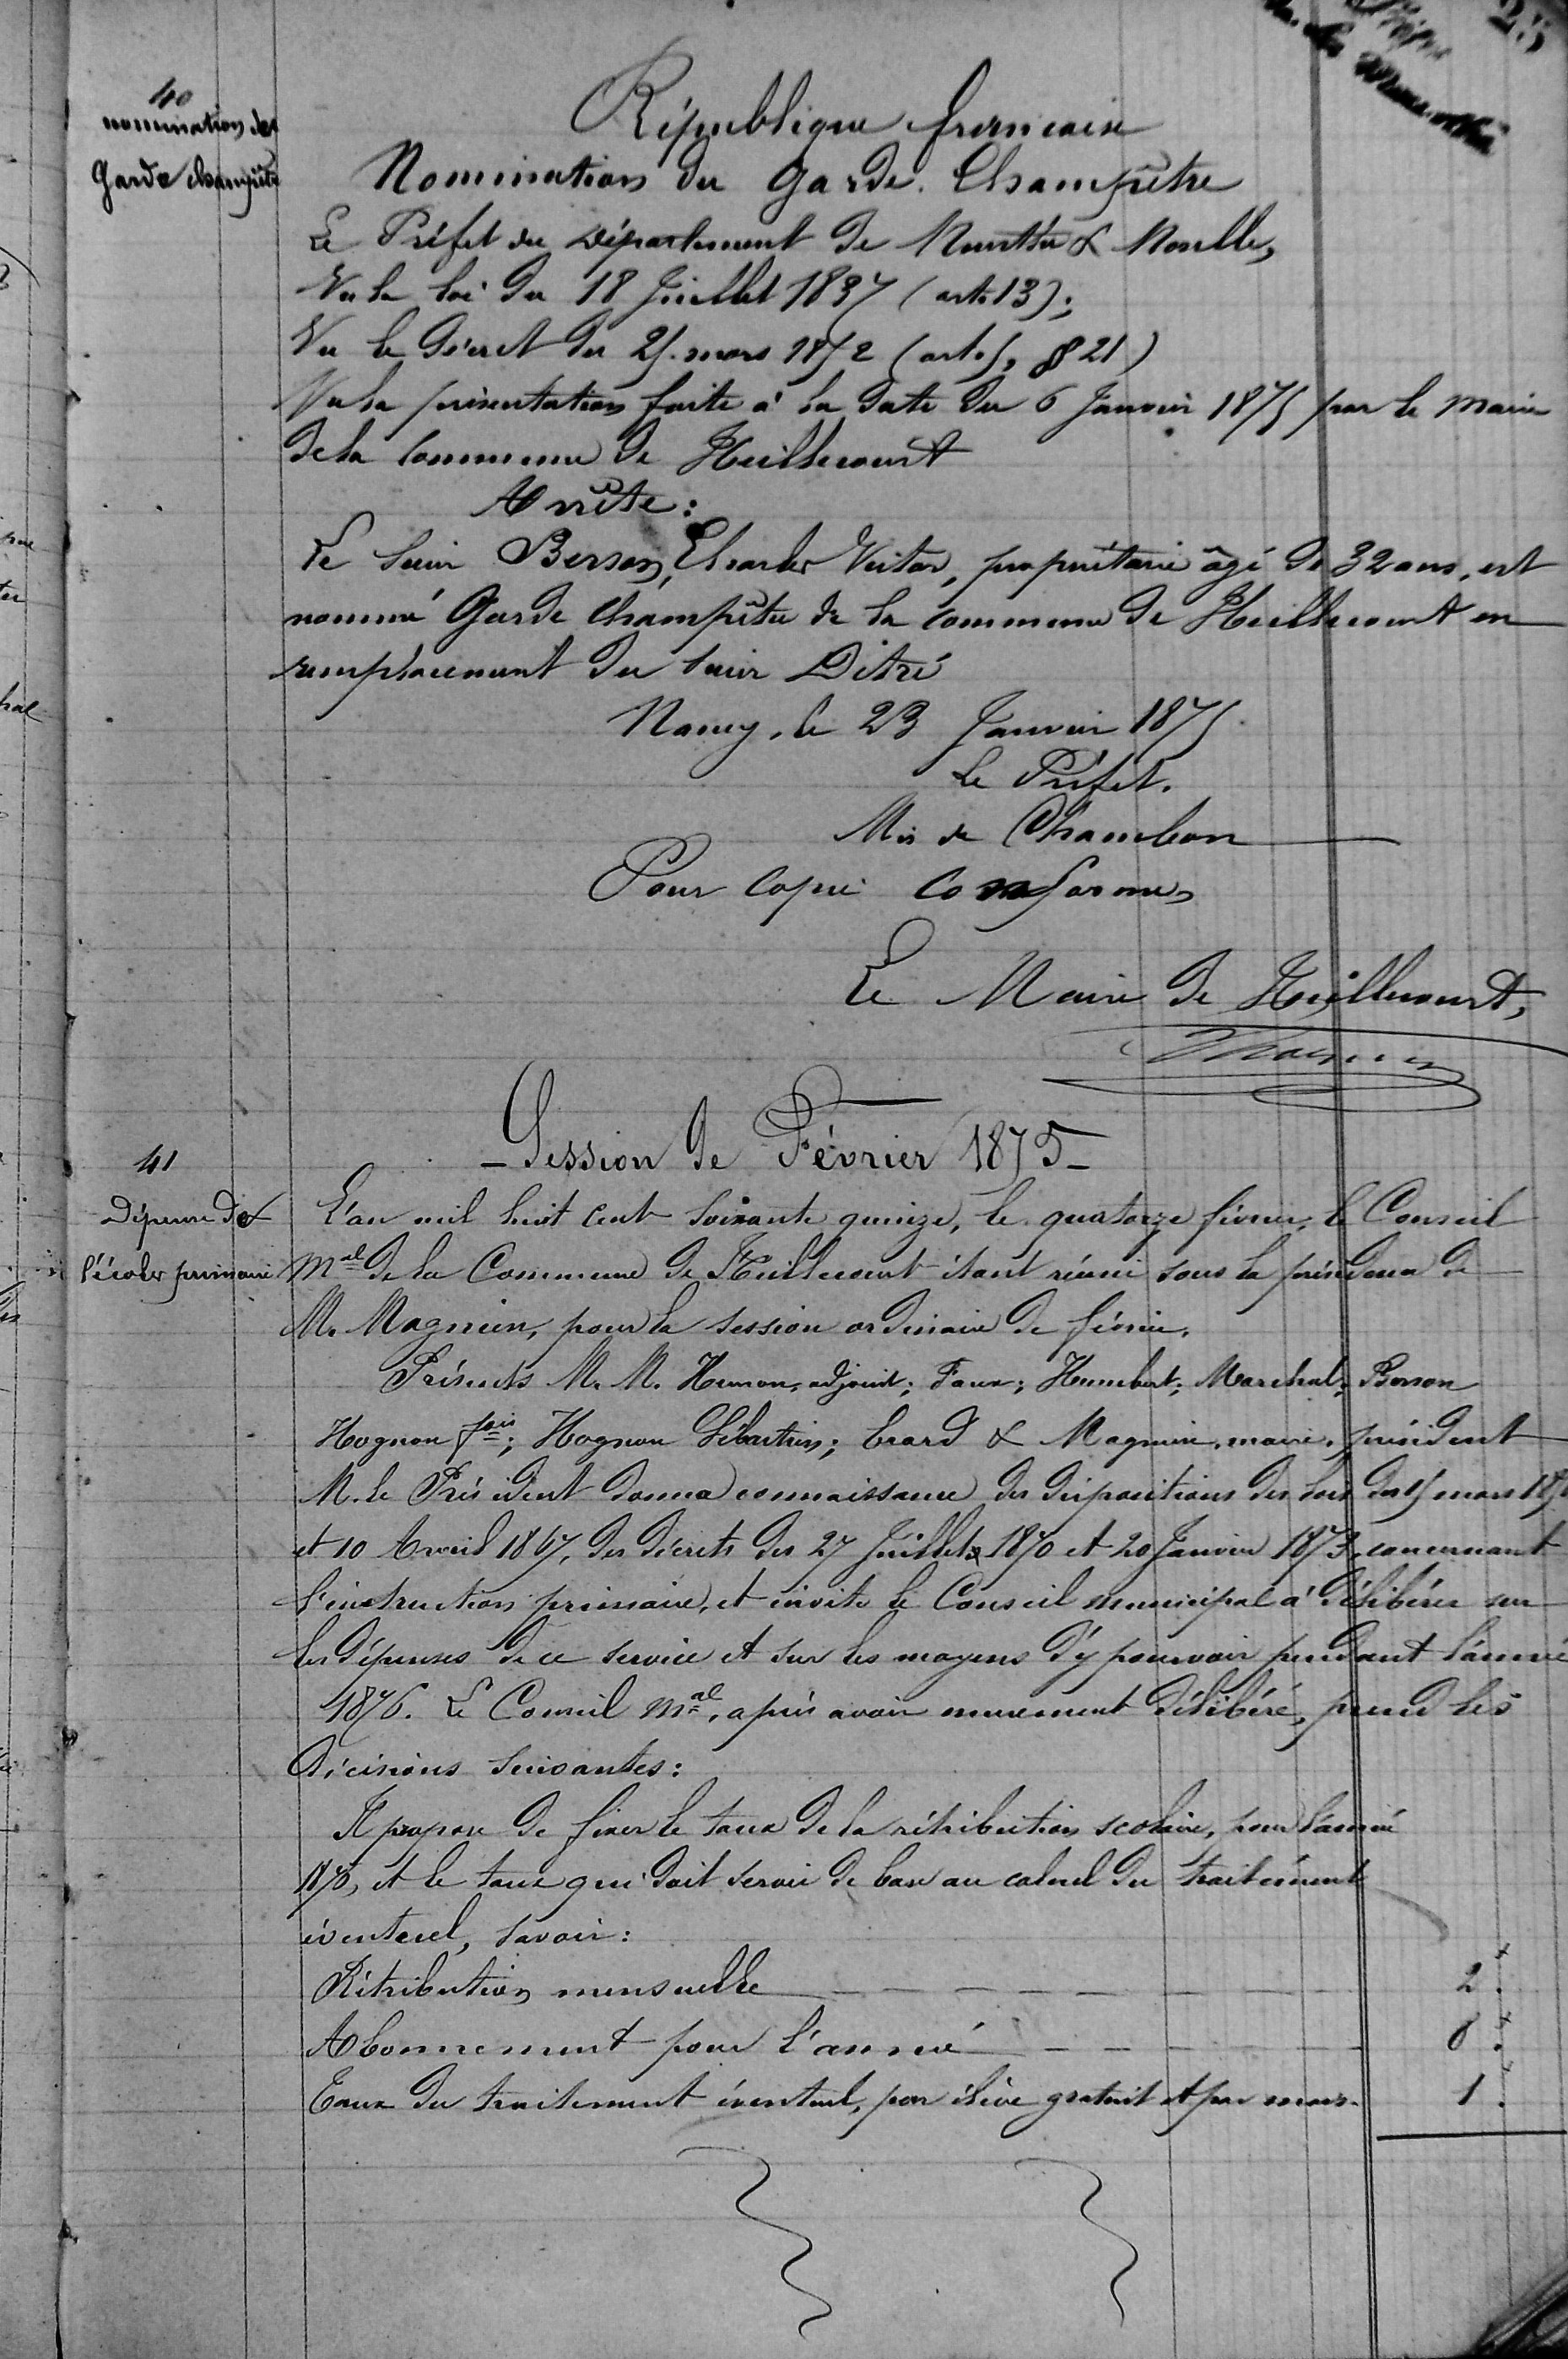 25
40
nomination du
Garde champêtre
République francaise
Nomination du Garde. Champêtre
Le Préfet du Département de Meurthe & Moselle,
Vu la loi du 18 Juillet 1837 (art. 13);
Vu le Décret du 25 mars 1852 (art. 5, § 21)
Vu la présentation faite à la date du 6 Janvier 1875 par le Maire
de la Commune de Heillecourt
Arrête:
Le Sieur Berson, Charles Victor, propriétaire âgé de 32 ans, est
nommé Garde Champêtre de la commune de Heillecourt en
remplacement du Sieur Ditré
Nancy, le 23 Janvier 1875
Le Préfet.
Mis de Chambon
Pour copie conforme,
Le Maire de Heillecourt,
Magnien
- Session de Février 1875 -
41
Dépense de
l'école primaire
L'an mil huit cent soixante quinze, le quatorze février, le Conseil
Mal de la Commune de Heillecourt étant réuni sous la présidence de
M. Magnien, pour la session ordinaire de février.
Présents M. M. Humon, adjoint; Faux; Humbert; Marchal; Berson
Hognon fois; Hognon Sébastien; Erard & Magnien, maire, président
M. le Président donna connaissance des dispositions des lois des 15 mars 1850
et 10 Avril 1867, des décrets des 27 Juillet 1870 et 20 Janvier 1873, concernant
l'instruction primaire, et invite le Conseil municipal à délibérer sur
les dépenses de ce service et sur les moyens d'y pourvoir pendant l'année
1876. Le Conseil Mal, après avoir murement délibéré, prend les
décisions suivantes:
Il propose de fixer le taux de la rétribution scolaire, pour l'année
1876, et le taux qui doit servir de base au calcul du traitement
éventuel, savoir:
Rétribution mensuelle 2.
Abonnement pour l'année 8.
Taux du traitement éventuel, par élève gratuit et par mois. 1.